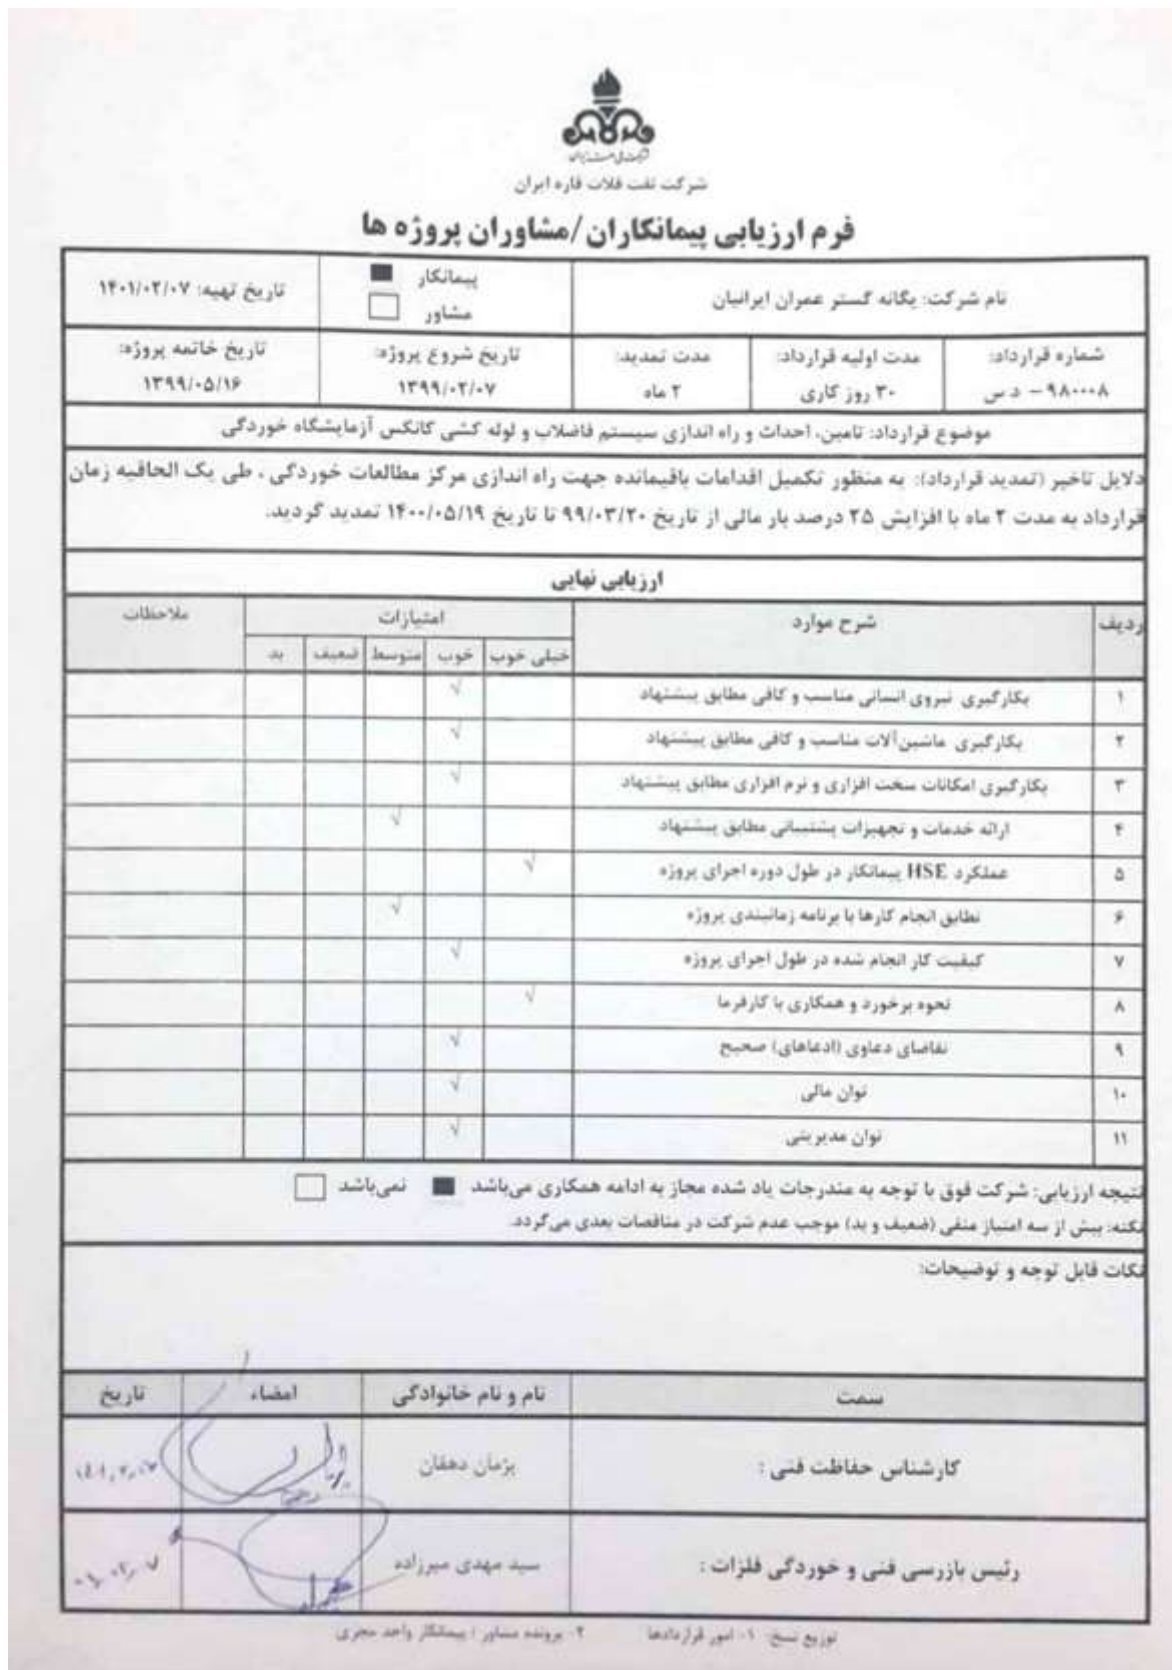 شرکت نفت فلات قاره ایران
فرم ارزیابی پیمانکاران/مشاوران پروژه ها
نام شرکت: یگانه گستر عمران ایرانیان
پیمانکار
مشاور
تاریخ تهیه: ۱۴۰۱/۰۲/۰۷
شماره قرارداد:
۹۸۰۰۰۸ – د س
مدت اولیه قرارداد:
۳۰ روز کاری
مدت تمدید:
۲ ماه
تاریخ شروع پروژه:
۱۳۹۹/۰۲/۰۷
تاریخ خاتمه پروژه:
۱۳۹۹/۰۵/۱۶
موضوع قرارداد: تامین، احداث و راه اندازی سیستم فاضلاب و لوله کشی کانکس آزمایشگاه خوردگی
دلایل تاخیر (تمدید قرارداد): به منظور تکمیل اقدامات باقیمانده جهت راه اندازی مرکز مطالعات خوردگی ، طی یک الحاقیه زمان
قرارداد به مدت ۲ ماه با افزایش ۲۵ درصد بار مالی از تاریخ ۹۹/۰۳/۲۰ تا تاریخ ۱۴۰۰/۰۵/۱۹ تمدید گردید.
ارزیابی نهایی
ردیف شرح موارد امتیازات ملاحظات
خیلی خوب خوب متوسط ضعیف بد
۱ بکارگیری نیروی انسانی مناسب و کافی مطابق پیشنهاد √
۲ بکارگیری ماشین‌آلات مناسب و کافی مطابق پیشنهاد √
۳ بکارگیری امکانات سخت افزاری و نرم افزاری مطابق پیشنهاد √
۴ ارائه خدمات و تجهیزات پشتیبانی مطابق پیشنهاد √
۵ عملکرد HSE پیمانکار در طول دوره اجرای پروژه √
۶ تطابق انجام کارها با برنامه زمانبندی پروژه √
۷ کیفیت کار انجام شده در طول اجرای پروژه √
۸ نحوه برخورد و همکاری با کارفرما √
۹ تقاضای دعاوی (ادعاهای) صحیح √
۱۰ توان مالی √
۱۱ توان مدیریتی √
نتیجه ارزیابی: شرکت فوق با توجه به مندرجات یاد شده مجاز به ادامه همکاری می‌باشد نمی‌باشد
نکته: بیش از سه امتیاز منفی (ضعیف و بد) موجب عدم شرکت در مناقصات بعدی می‌گردد.
نکات قابل توجه و توضیحات:
سمت نام و نام خانوادگی امضاء تاریخ
کارشناس حفاظت فنی : پژمان دهقان
رئیس بازرسی فنی و خوردگی فلزات : سید مهدی میرزاده
توزیع نسخ: ۱- امور قراردادها ۲- پرونده مشاور / پیمانکار واحد مجری